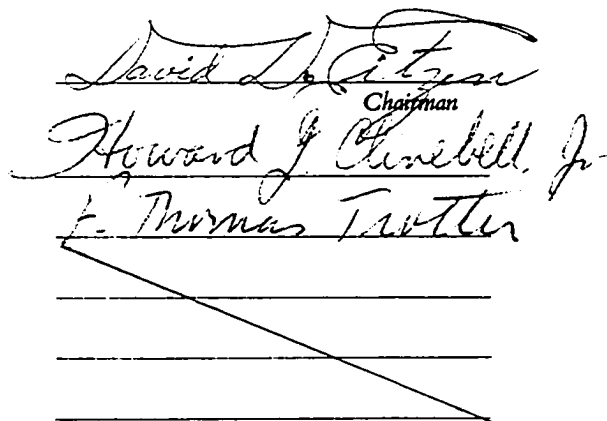 David D. Eitzen
Chairman
Howard J. Clinebell, Jr.
F. Thomas Trotter